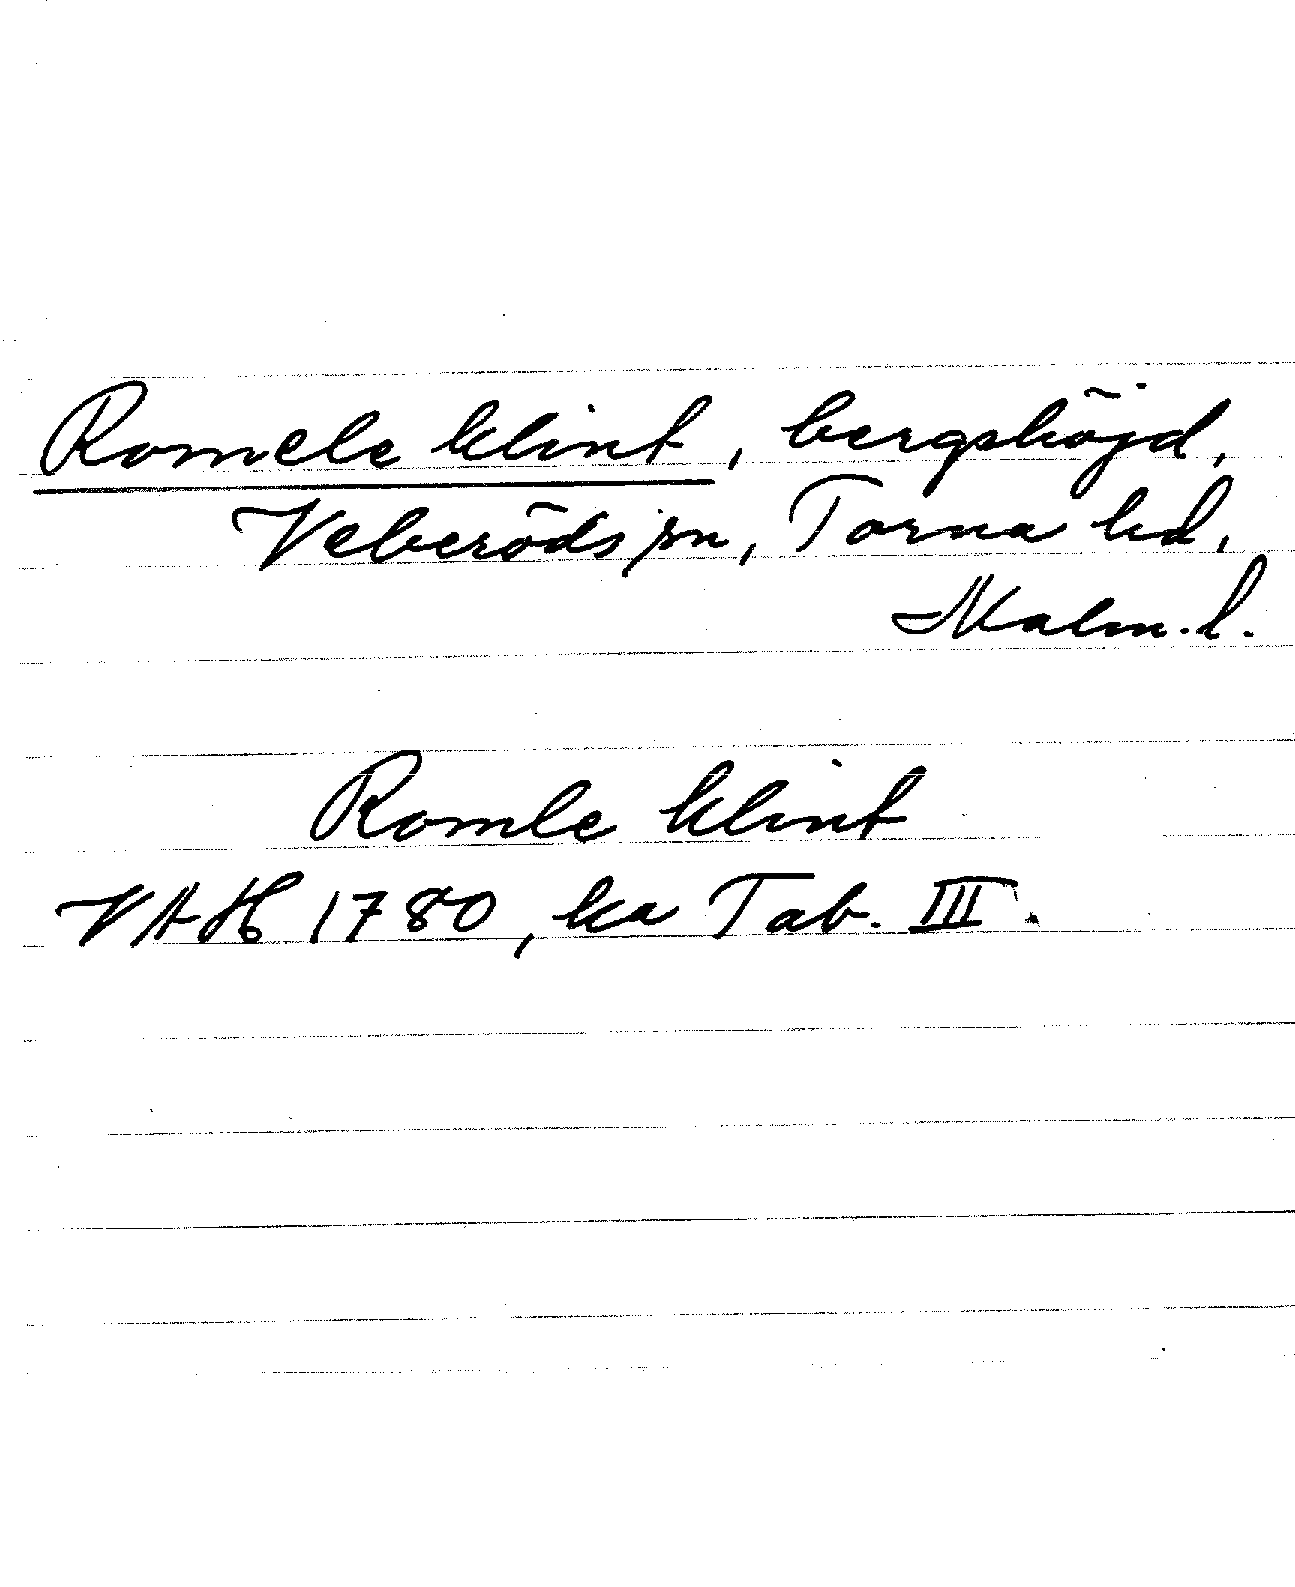 Romele klint, bergshöjd,
Veberöds sn, Torna hd,
Malm. l.
Romle klint
VAH 1780, ka Tab. III.